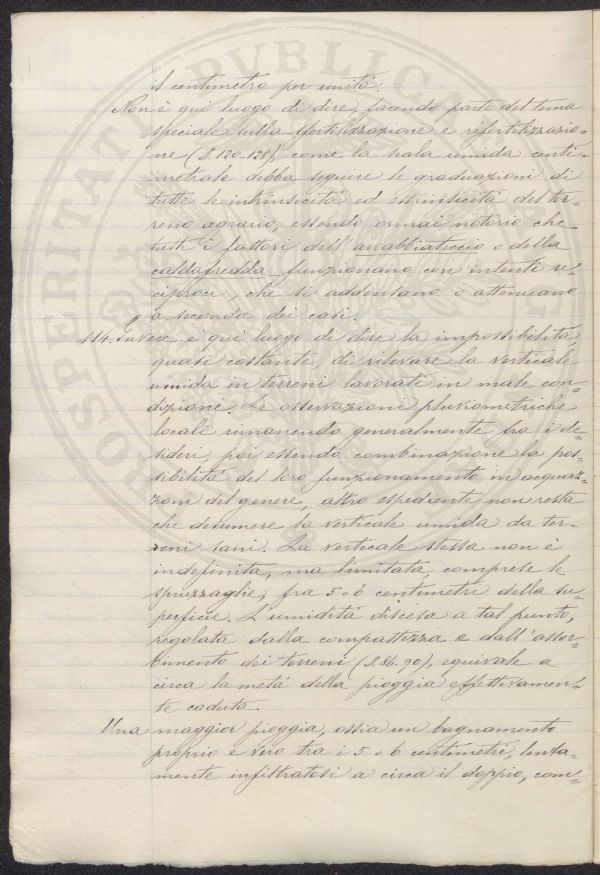 il centimetro per unità.
Non è quì luogo di dire, facendo parte del tema
speciale sulla sfertilizzazione e rifertilizzazio-
ne (S. 120-128), come la scala umida centi-
metrale debba seguire le graduazioni di
tutte le intrinsicità ed estrinsicità del ter-
reno agrario, essendo ormai notorio che
tutti i fattori dell'arrabbiaticcio o della
caldafredda funzionano con intenti re-
ciproci, che si addentano o attenuano
a seconda dei casi.
114. Invece è quì luogo di dire la impossibilità,
quasi costante, di rilevare la verticale
umida in terreni lavorati in male con-
dizioni. Le osservazioni pluviometriche
locali rimanendo generalmente fra i de-
sideri, poi essendo combinazione la pos-
sibilità del loro funzionamento in acquaz-
zoni del genere, altro espediente non resta
che desumere la verticale umida da ter-
reni sani. La verticale stessa non è
indefinita, ma limitata, comprese le
spruzzaglie, fra 5 o 6 centimetri della su-
perficie. L'umidità discesa a tal punto,
regolata dalla compattezza e dall'assor-
bimento dei terreni (S. 86. 90), equivale a
circa la metà della pioggia effettivamen-
te caduta.
Una maggior pioggia, ossia un bagnamento
proprio e vero tra i 5 o 6 centimetri, lenta-
mente infiltratosi a circa il doppio, com-
PROSPERITATI PVBLICAE